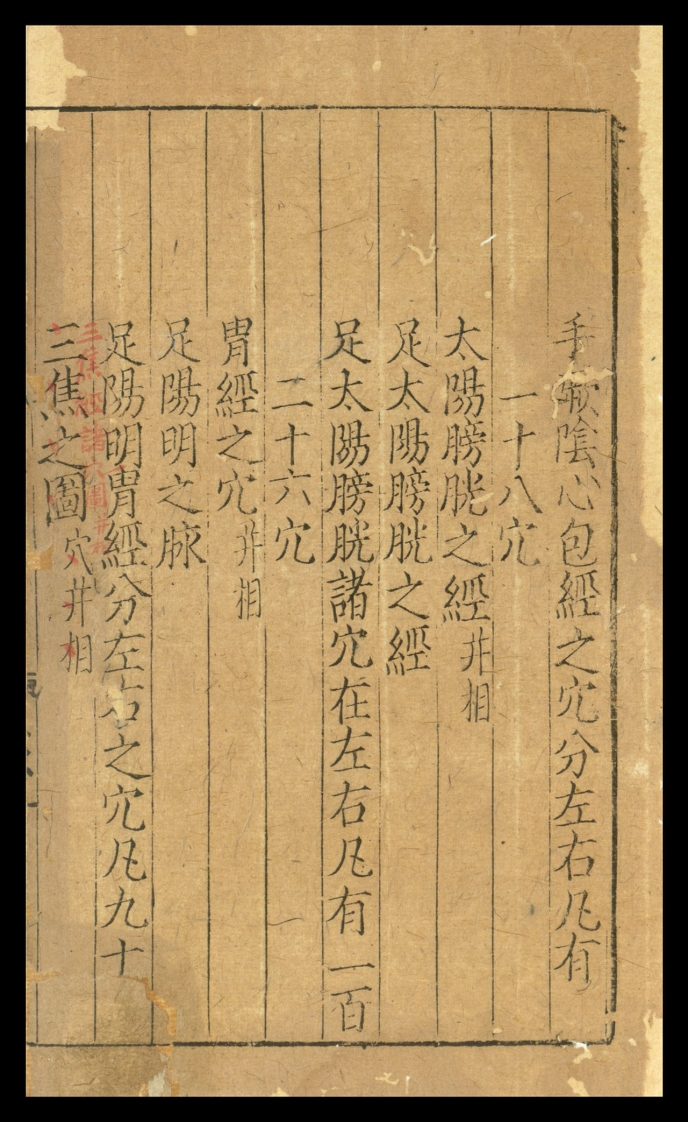 手厥陰心包經之穴分左右凡有
一十八穴
太陽膀胱之經并相
足太陽膀胱之經
足太陽膀胱諸穴在左右凡有一百
二十六穴
胃經之穴并相
足陽明之脉
足陽明胃經分左右之穴凡九十
三焦經諸穴圖并相
三焦之圖穴并相